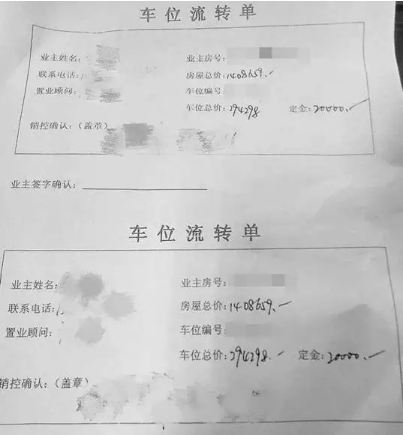 车位流转单
业主姓名: 业主房号:
联系电话: 房屋总价:1408659.-
置业顾问: 车位编号:
车位总价:294298 定金:20000.-
销控确认:(盖章)
业主签字确认:
车位流转单
业主姓名: 业主房号:
联系电话: 房屋总价:1408659.-
置业顾问: 车位编号:
车位总价:294298.- 定金:20000.-
销控确认:(盖章)